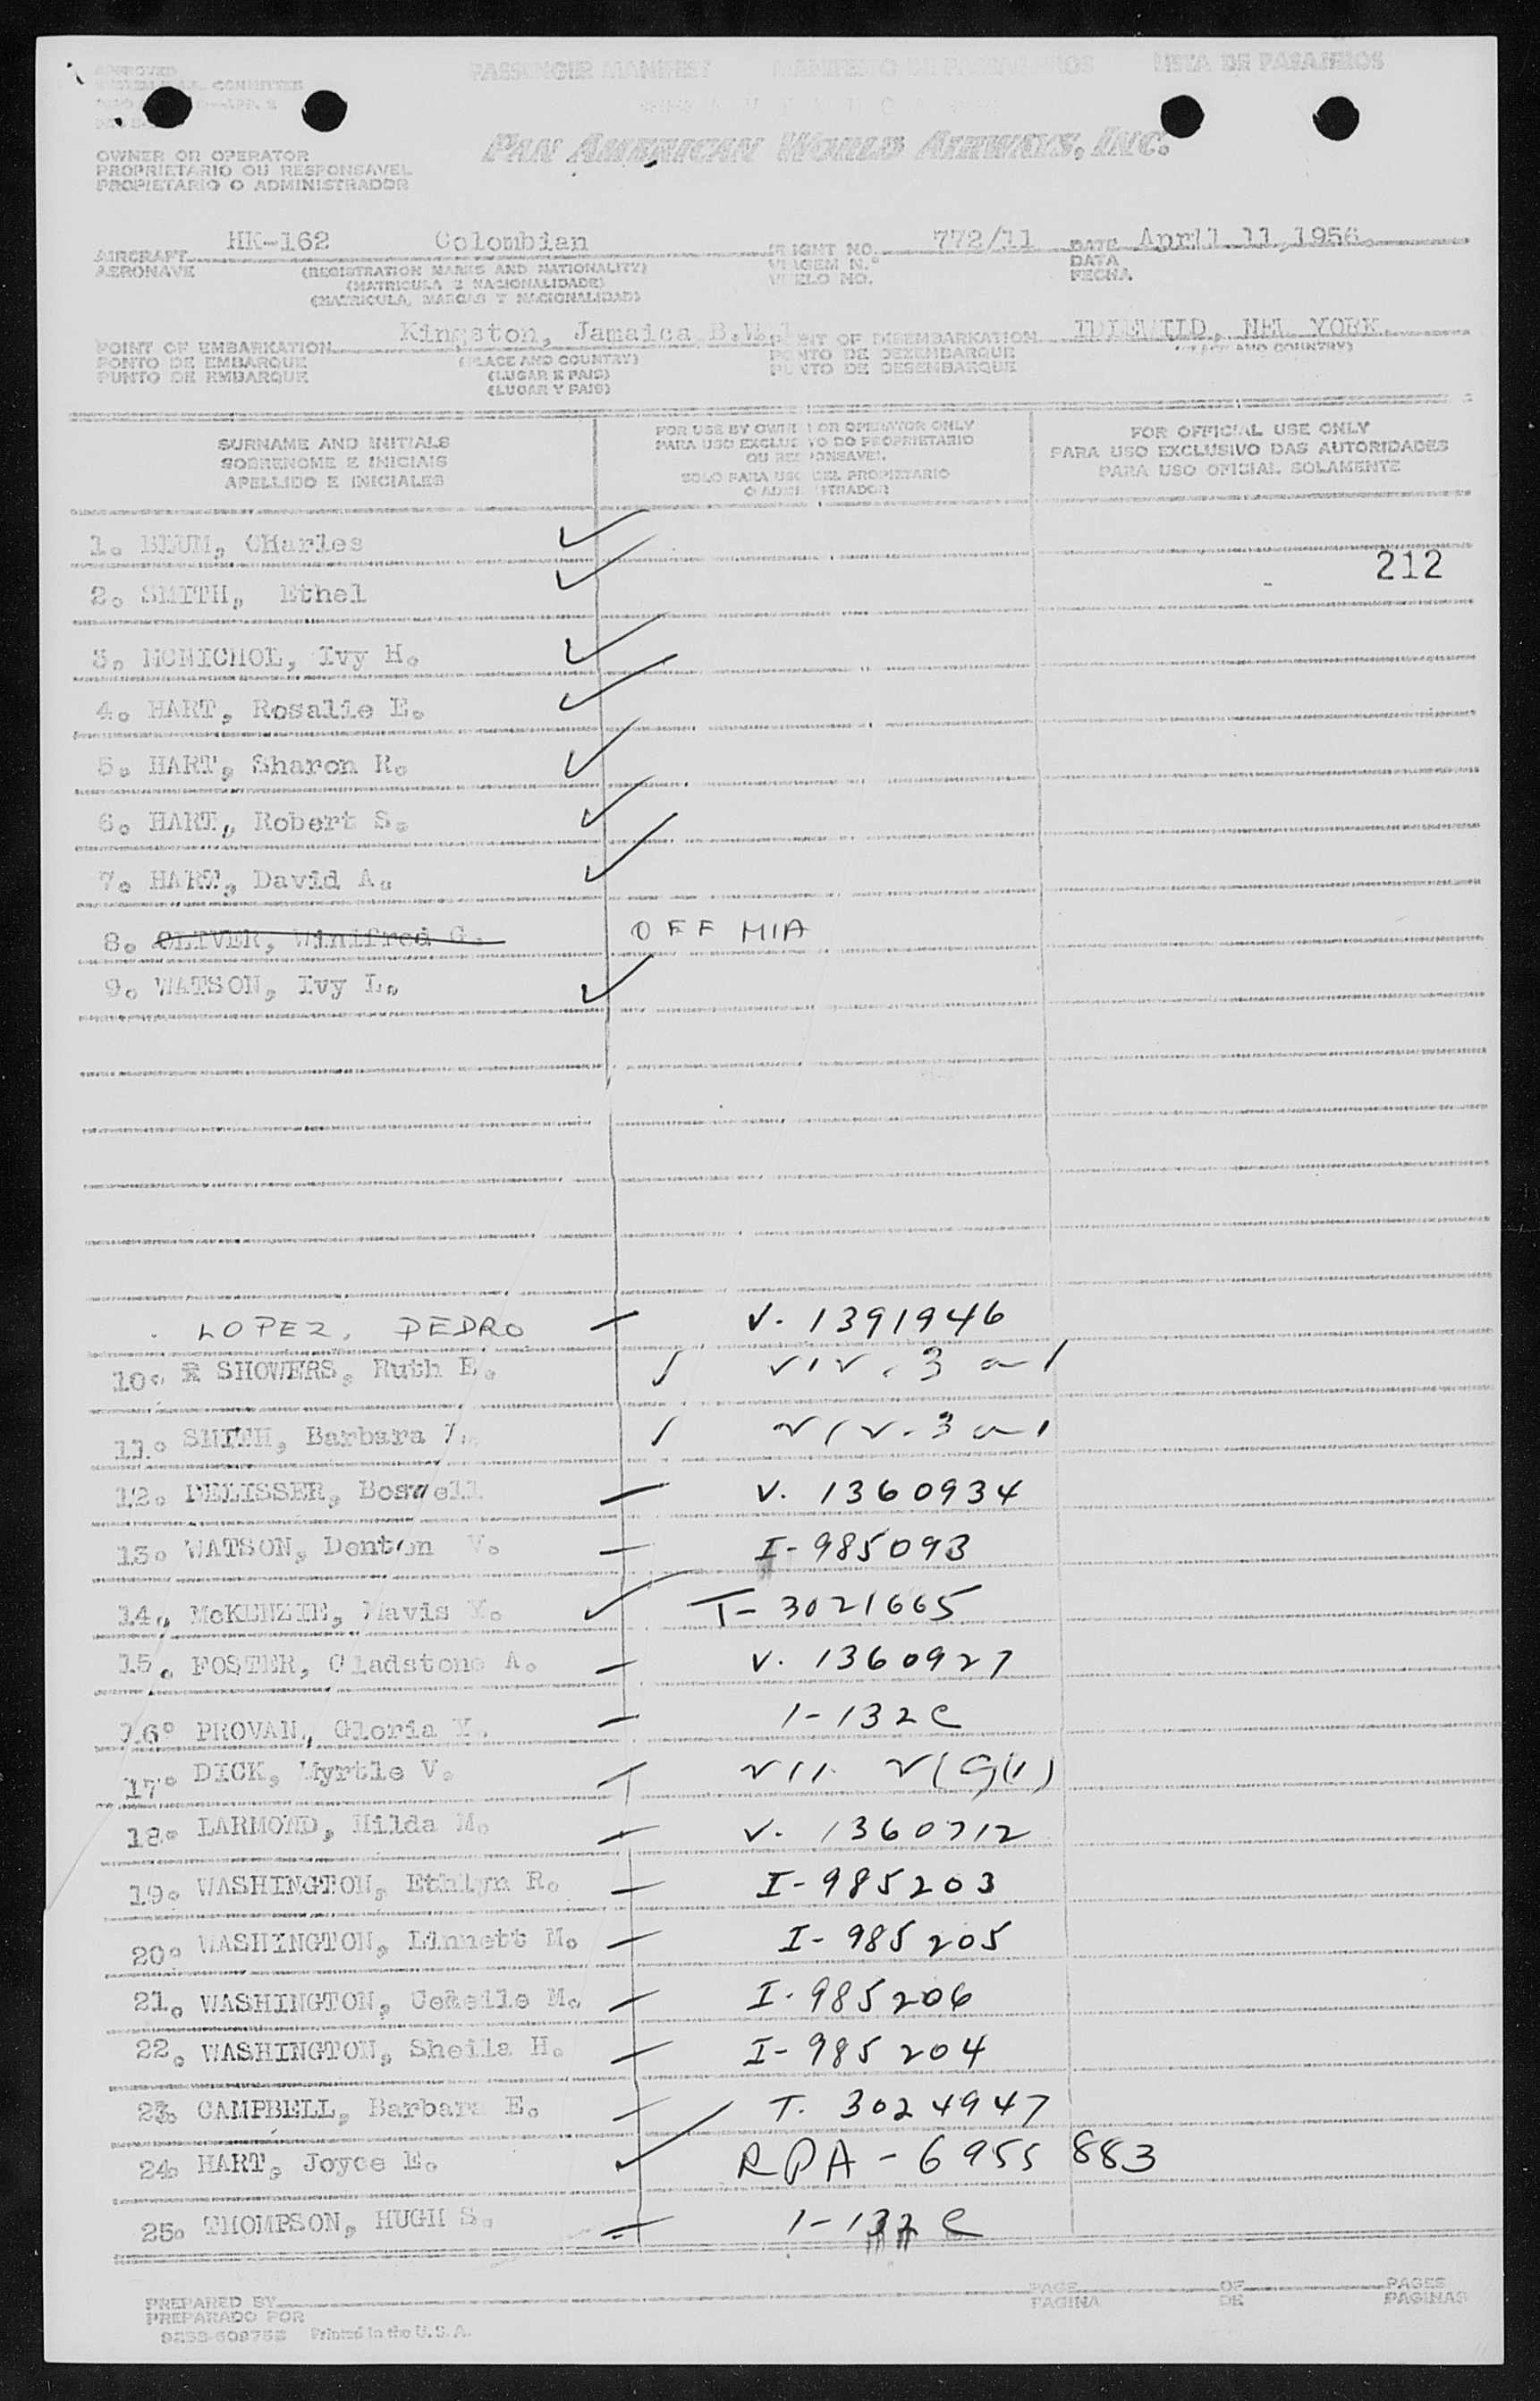 APPROVED
PASSENGER MANIFEST MANIFESTO DE PASSAGEIROS LISTA DE PASAJEROS
PAN AMERICAN WORLD AIRWAYS, INC.
OWNER OR OPERATOR
PROPRIETARIO OU RESPONSAVEL
PROPIETARIO O ADMINISTRADOR
AIRCRAFT HK-162 Colombian FLIGHT NO. 772/11 DATE April 11, 1956.
AERONAVE (REGISTRATION MARKS AND NATIONALITY) VIAGEM N.º DATA
(MATRICULA E NACIONALIDADE) VUELO NO. FECHA
(MATRICULA, MARCAS Y NACIONALIDAD)
POINT OF EMBARKATION Kingston, Jamaica B.W.I POINT OF DISEMBARKATION IDLEWILD, NEW YORK.
PONTO DE EMBARQUE (PLACE AND COUNTRY) PONTO DE DEZEMBARQUE (PLACE AND COUNTRY)
PUNTO DE EMBARQUE (LUGAR E PAIS) PUNTO DE DESEMBARQUE
(LUGAR Y PAIS)
SURNAME AND INITIALS
SOBRENOME E INICIAIS
APELLIDO E INICIALES
FOR USE BY OWNER OR OPERATOR ONLY
PARA USO EXCLUSIVO DO PROPRIETARIO
OU RESPONSAVEL
SOLO PARA USO DEL PROPIETARIO
O ADMINISTRADOR
FOR OFFICIAL USE ONLY
PARA USO EXCLUSIVO DAS AUTORIDADES
PARA USO OFICIAL SOLAMENTE
1. BLUM, CHarles
212
2. SMITH, Ethel
3. MCNICHOL, Ivy H.
4. HART, Rosalie E.
5. HART, Sharon R.
6. HART, Robert S.
7. HART, David A.
8. OLIVER, Winifred G. OFF MIA
9. WATSON, Ivy L.
LOPEZ, PEDRO V. 1391946
10. SHOWERS, Ruth E.
11. SMITH, Barbara
12. DELISSER, Boswell V. 1360934
13. WATSON, Denton V. I-985093
14. McKENZIE, Mavis T-3021665
15. FOSTER, Gladstone A. V. 1360927
16. PROVAN, Gloria 1-132C
17. DICK, Myrtle V.
18. LARMOND, Hilda M. V. 1360712
19. WASHINGTON, Ethlyn R. I-985203
20. WASHINGTON, Linnett M. I-985205
21. WASHINGTON, M. I-985206
22. WASHINGTON, Sheila H. I-985204
23. CAMPBELL, Barbara E. T. 3024947
24. HART, Joyce E. RPA-6955883
25. THOMPSON, HUGH S. 1-132 C
PREPARED BY PAGE OF PAGES
PREPARADO POR PAGINA DE PAGINAS
Printed in the U.S.A.